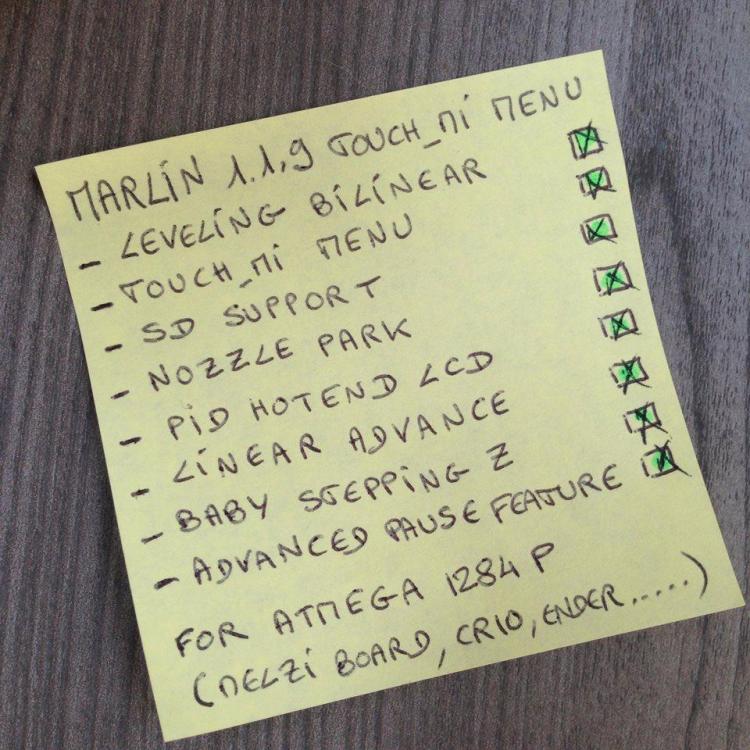 MARLIN 1.1.9 TOUCH_MI MENU
- LEVELING BILINEAR
- TOUCH_MI MENU
- SD SUPPORT
- NOZZLE PARK
- PID HOTEND LCD
- LINEAR ADVANCE
- BABY STEPPING Z
- ADVANCED PAUSE FEATURE
FOR ATMEGA 1284 P
(MELZI BOARD, CR10, ENDER.....)